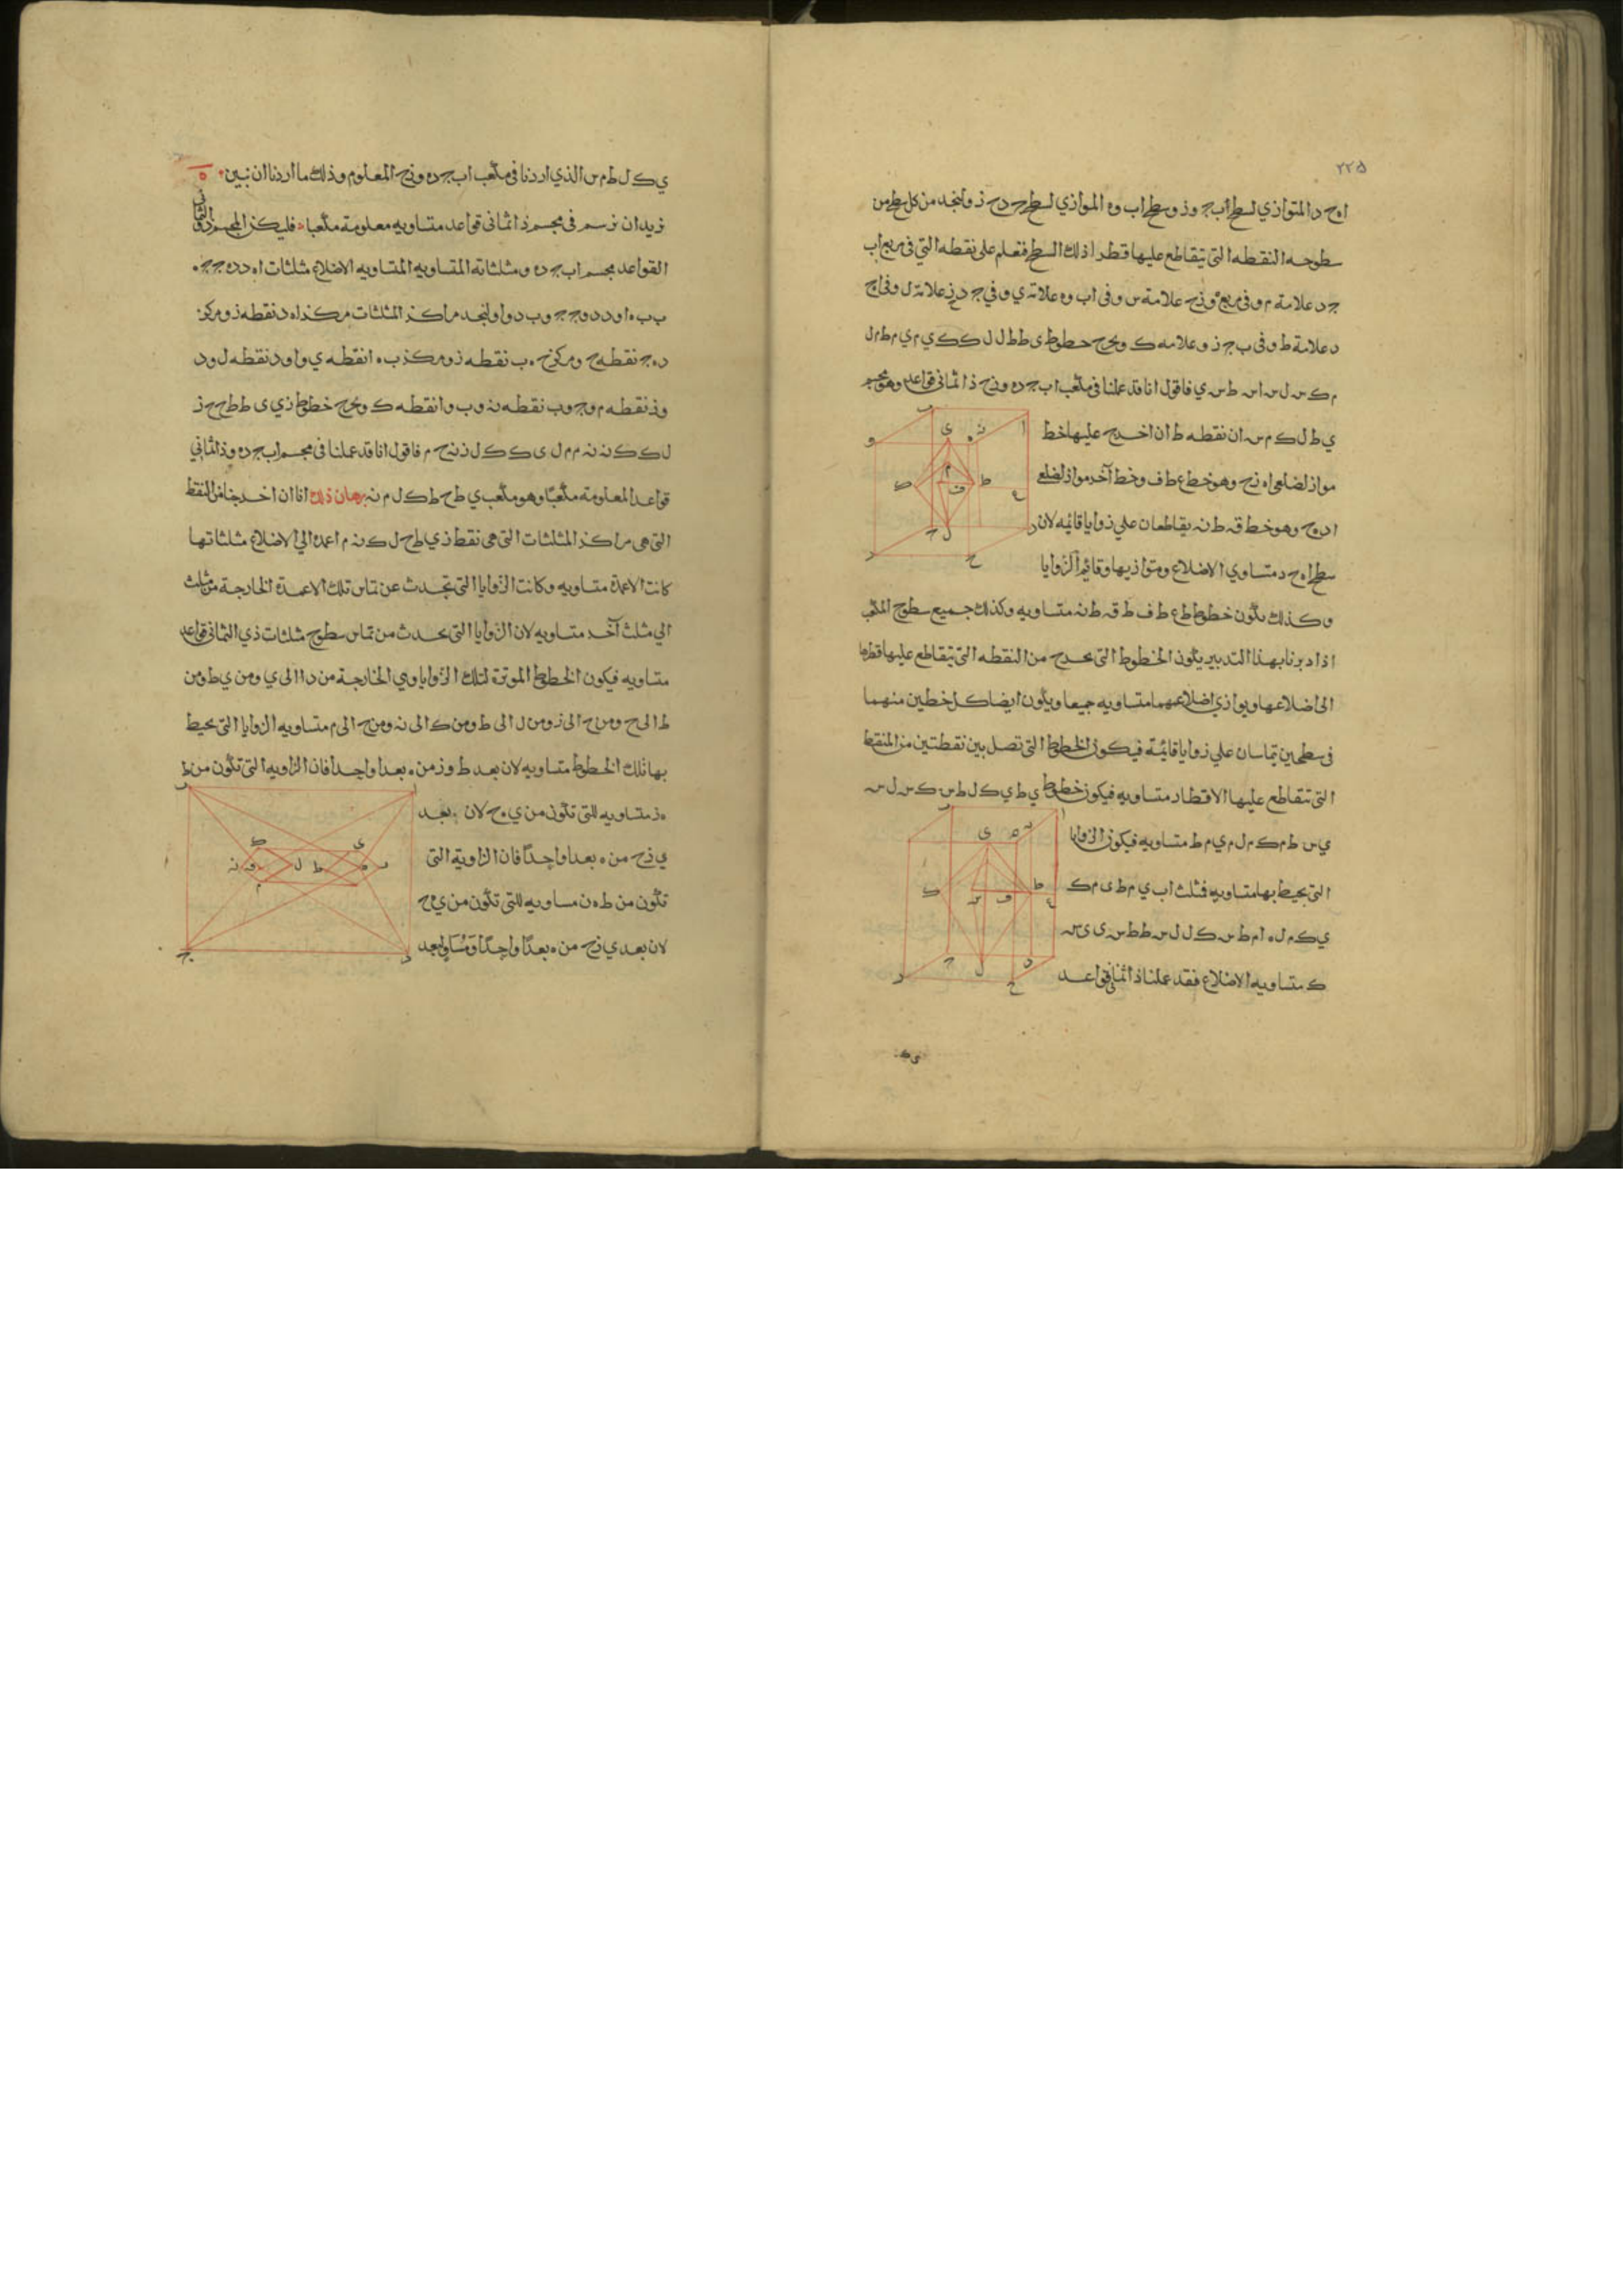 ٢٢٥
اه ح د المتوازي لسطح اب ج وز وسطح اب وه الموازي لسطح ج د ح ز ولنجد من كل سطح من
سطوحه النقطه التي يتقاطع عليها قطرا ذلك السطح فنعلم على نقطه التي في مربع اب
ج د علامة م وفي مربع ه وز ح علامة س وفي اب وه علامة ي وفي ج د ح ز علامة ل وفي اح
د علامة ط وفي ب ج ز و علامه ك ونخرج خطوط ي ط ط ل ل ك ك ي م ي م ط م ل
م ك س ل س ط س ي فاقول انا قد عملنا في مكعب اب ج ده وزح ذا الثماني قواعد وهو مجسم
ي ط ل ك م س ان نقطه ط ان اخرج عليها خط
مواز لضلعي اه زح وهو خط ع ط ف وخط آخر مواز لضلع
اد ه ح وهو خط ق ط نه يقاطعان على زوايا قائمه لان
سطح اه ح د متساوي الاضلاع ومتوازيها وقائم الزوايا
وكذلك تكون خطوط ط ع ط ف ط ق ط نه متساويه وكذلك جميع سطوح المكعب
اذا دبرنا بهذا التدبير يكون الخطوط التي تخرج من النقطه التي يتقاطع عليها قطرها
الى اضلاعها ويوازي اضلاعهما متساويه جميعا ويكون ايضا كل خطين منهما
في سطحين يتماسان على زوايا قائمة فيكون الخطوط التي تصل بين نقطتين من النقط
التي تتقاطع عليها الاقطار متساويه فيكون خطوط ي ط ي ك ل ط س ك س ل س
ي س ط م ك م ل م ي م ط متساويه فيكون الزوايا
التي يحيط بها متساويه فمثلث اب ي م ط ي م ك
ي ك م ل م ط س ك ل ل س ط ط س ي ي س
ك متساويه الاضلاع فقد عملنا ذا الثماني قواعد
ي ك
ي ك ل ط م س الذي اردنا في مكعب اب ج ده وزح المعلوم وذلك ما اردنا ان نبين ه
نريد ان نرسم في مجسم ذا ثماني قواعد متساويه معلومة مكعبا فليكن المجسم ذو الثماني
القواعد مجسم اب ج ده ومثلثاته المتساويه المتساويه الاضلاع مثلثات اه د ده ج ج ه
ب ب ه ا ود د وج ج وب د وا ولنجد مراكز المثلثات مركز اه د نقطه ز ومركز
د ه ج نقطه ح ومركز ج ه ب نقطه ز ومركز ب ه ا نقطه ي وا ود نقطه ل ود
وذ نقطه م وج وب نقطه نه وب وا نقطه ك ونخرج خطوط ز ي ي ط ط ح ح ز
ل ك ك نه نه م م ل ي ك ك ل ز نه ح م فاقول انا قد عملنا في مجسم اب ج ده و ذا الثماني
قواعد المعلومة مكعبا وهو مكعب ي ط ح ط ك ل م نه برهان ذلك انا ان اخرجنا من النقط
التي هي مراكز المثلثات التي هي نقط ز ي ط ح ل ك نه م اعمدة الى الاضلاع مثلثاتها
كانت الاعمدة متساويه وكانت الزوايا التي تحدث عن تماس تلك الاعمدة الخارجة من مثلث
الى مثلث آخر متساويه لان الزوايا التي تحدث من تماس سطوح مثلثات ذي الثماني قواعد
متساويه فيكون الخطوط الموترة لتلك الزوايا وهي الخارجة من د الى ي ومن ي ط ومن
ط الى ح ومن ح الى ز ومن ل الى ط ومن ك الى نه ومن ح الى م متساويه الزوايا التي يحيط
بها تلك الخطوط متساويه لان بعد ط وز من ه بعدا واحدا فان الزاويه التي تكون من ط
ه ز متساويه للتي تكون من ي ه ح لان بعد
ي زح من ه بعدا واحدا فان الزاوية التي
تكون من ط ه ن مساويه للتي تكون من ي ه ح
لان بعد ي زح من ه بعدا واحدا ومساو لبعد